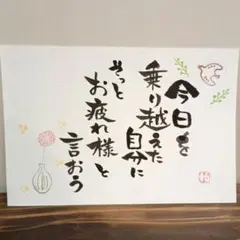 今日を
乗り越えた
自分に
そっと
お疲れ様と
言おう